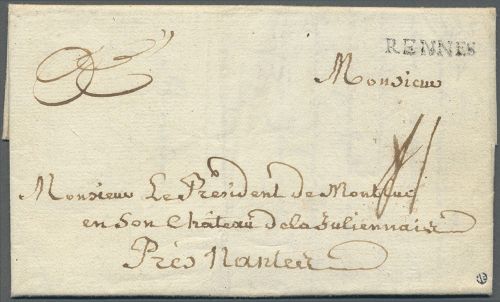 RENNES
Monsieur
Monsieur Le Président de Montluc
en Son Château de la Juliennais
Près Nantes